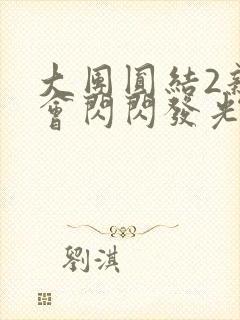 大團圓結2新
會閃閃發光
劉淇